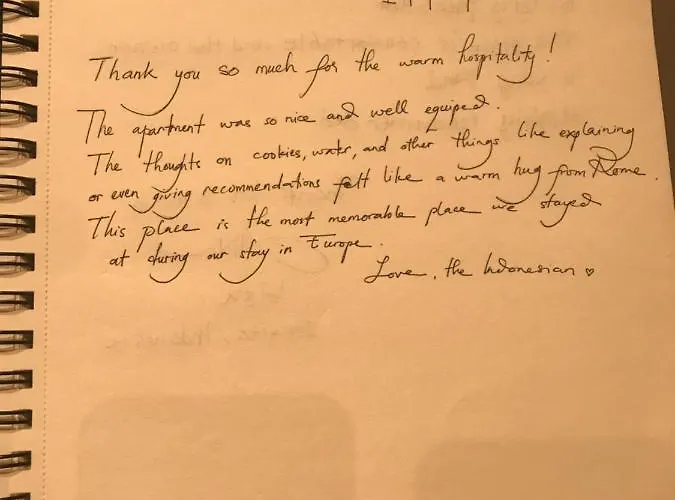 Thank you so much for the warm hospitality!
The apartment was so nice and well equiped.
The thoughts on cookies, water, and other things like explaining
or even giving recommendations felt like a warm hug from Rome.
This place is the most memorable place we stayed
at during our stay in Europe.
Love, the Indonesian ♡